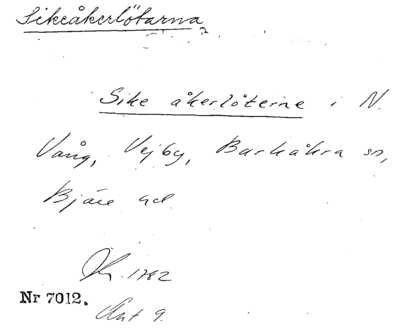 Sikeåkerlötarna
Sike åkerlöterne i N.
Vång, Vejby, Barkåkra sn,
Bjäre hd
1782
Nr 7012.
Akt 9.